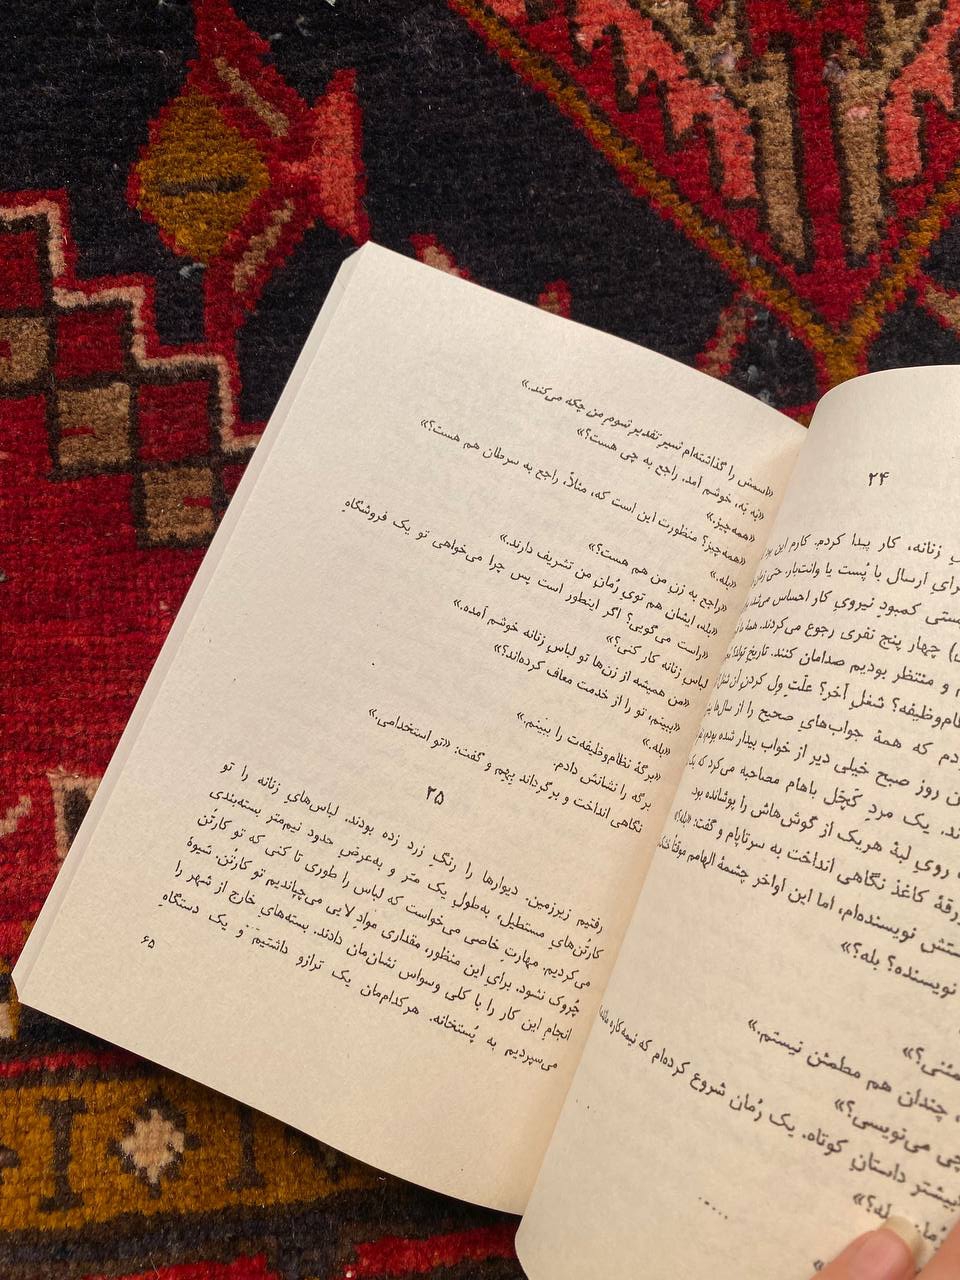 ۲۴
زنانه، کار پیدا کردم. کارم این
ارسال با پُست یا وانت‌بار. حتی
کمبودِ نیرویِ کار احساس
چهار پنج نفری رجوع می‌کردند. همه
و منتظر بودیم صدامان کنند. تاریخِ تولد؟
شغلِ آخر؟ علّتِ ول کردنِ آن شغل
که همهٔ جواب‌هایِ صحیح را از سال‌ها
روز صبح خیلی دیر از خواب بیدار شده بودم
یک مردِ کچَل باهام مصاحبه می‌کرد که یک
رویِ لبهٔ هریک از گوش‌هاش را پوشانده بود
ورقهٔ کاغذ نگاهی انداخت به سرتاپام و گفت: «بله؟»
نویسنده‌ام، اما این اواخر چشمهٔ الهامم موقتاً
نویسنده؟ بله؟»
چندان هم مطمئن نیستم.»
چی می‌نویسی؟»
بیشتر داستانِ کوتاه. یک رُمان شروع کرده‌ام که نیمه‌کاره
«اسمش را گذاشته‌ام شیرِ تقدیرِ شومِ من چکه می‌کند.»
«بَه بَه، خوشم آمد. راجع به چی هست؟»
«همه‌چیز.»
«همه‌چیز؟ منظورت این است که، مثلاً، راجع به سرطان هم هست؟»
«بله.»
«راجع به زنِ من هم هست؟»
«بله، ایشان هم تویِ رُمانِ من تشریف دارند.»
«راست می‌گویی؟ اگر اینطور است پس چرا می‌خواهی تو یک فروشگاهِ
لباسِ زنانه کار کنی؟»
«من همیشه از زن‌ها تو لباسِ زنانه خوشم آمده.»
«ببینم، تو را از خدمت معاف کرده‌اند؟»
«بله.»
«برگهٔ نظام‌وظیفه‌ت را ببینم.»
برگه را نشانش دادم.
نگاهی انداخت و برگرداند بِهِم و گفت: «تو استخدامی.»
۲۵
رفتیم زیرزمین. دیوارها را رنگِ زرد زده بودند. لباس‌هایِ زنانه را تو
کارتُن‌هایِ مستطیل، به‌طولِ یک متر و به‌عرضِ حدود نیم‌متر بسته‌بندی
می‌کردیم. مهارتِ خاصی می‌خواست که لباس را طوری تا کنی که تو کارتُن
چُروک نشود. برایِ این منظور، مقداری موادِ لایی می‌چپاندیم تو کارتُن. شیوهٔ
انجامِ این کار را با کلی وسواس نشان‌مان دادند. بسته‌هایِ خارج از شهر را
می‌سپردیم به پُستخانه. هرکدام‌مان یک ترازو داشتیم و یک دستگاهِ
۶۵